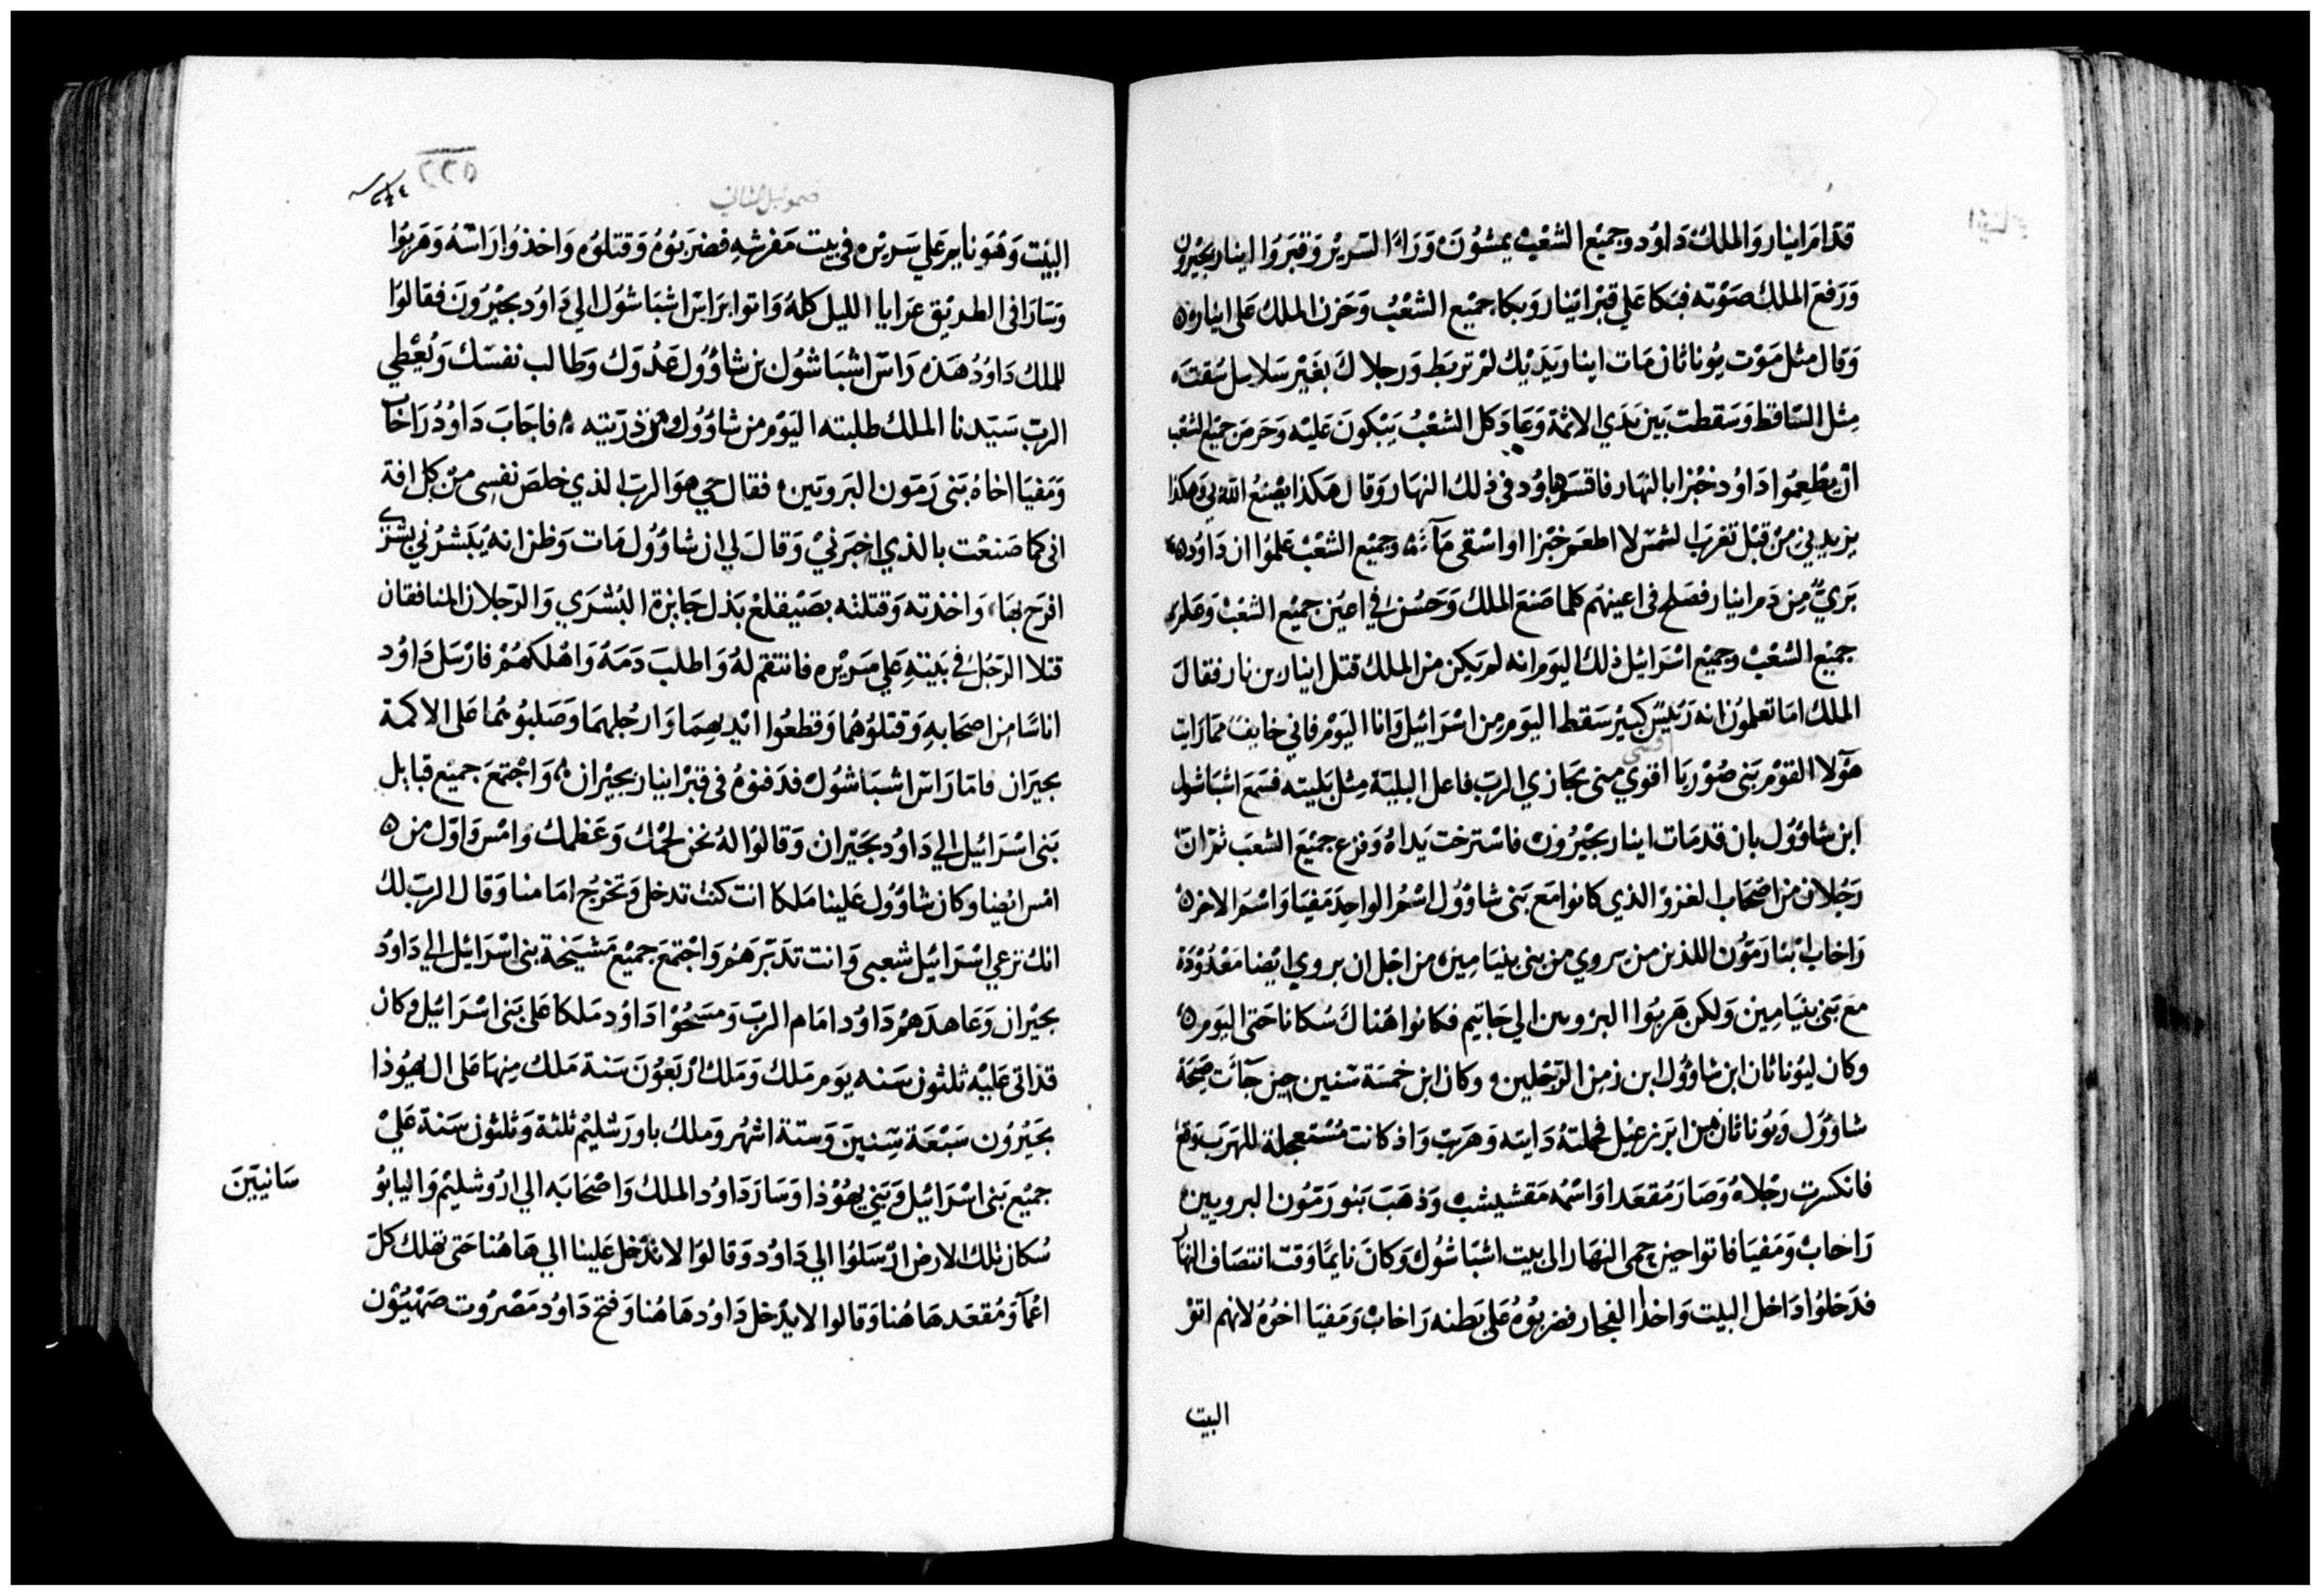 قدَامَ ابنار وَالملك دَاوُد وجميْع الشعْب يمشوُنَ وَرَاءَ السَرير وَقبَرَوُا ابنار بجبْرون
وَرَفعَ الملك صَوْته فبَكا عَلي قبْر ابْنار وَبكا جميْع الشعْبُ وَحَزن الملك عَلى ابنار
وَقال مثل مَوْت يوُناثان مَات ابنار وَيَديْك لمْ تربَط وَرجلاك بغَيْر سَلاسل سُقتَ
مِثل السَّاقط وَسَقطت بَين يَدَي الاثمَة وَعَادَ كل الشعْبُ يَبْكونَ عَليْه وَحَرمَ جميْع الشعْب
انْ يطْعِموُا دَاوُد خبْزا بالنهَار فاقسَمَ دَاوُد في ذلك النهَار وَقال هَكذا يصْنعُ الله بي وَهَكذا
يزيدني منْ قبْل تغرب الشمسْ لا اطعَم خبْزا او اسْقى مَآءً وجميْع الشعْبْ عَلموُا ان دَاوُد
بَريٌ مِن دَم ابنار فصَلح فى اعينهم كلما صَنعَ الملك وَحَسُنَ في اعيَن جميْع الشعْبْ وَعَلم
جميْع الشعْبْ وجميْع اسْرَائيل ذلك اليَوم انه لم يكن من الملك قتل ابنار بن نار فقالَ
الملك امَا تعلموُن انه رَئيسٌ كبيْر سَقط اليَوم مِن اسْرَائيل وَانا اليَوْم فاني خايفٌ ممَا رَايت
هَؤلا القوْم بَنى صُوْريَا اقوي منى يجَازي الربّ فاعل البليَة مِثل بَليته فسَمعَ اشبَاشول
اقسى
ابن شاوُوُل بان قد مَات ابنار بجبْرُون فاسْترخت يَداهُ وَفزع جميْع الشعَب ثمْ انّ
رَجُلان من اصْحَاب الغزوْ الذي كانوا مَع بَنى شاوُوُل اسْمُ الواحِد مَفيَا وَاسْمَ الاخرُ
رَاخاب ابْنا رَمّوُن اللذين من بروي من بنى بنيَامِين من اجْل ان بروي ايْضا مَعْدُوْدَة
مَع بَنى بنيَامِين وَلكن هَربُوا البروين الي جَاتيم فكانوا هُناكَ سُكانا حَتى اليَوم
وكان ليُوناثان ابن شاوُوُل ابن زمِن الرّجْلين وكان ابن خمْسَة سْنين حِين جَآئت صِيحَة
شاوُوُل وَيُوناثان مِن ايزرعيْل فحمَلتهُ دَايته وَهَربَت وَاذ كانت مُسْتعجلة للهرَب وقع
فانكسرت رجْلاهُ وَصَارَ مُقعَدا وَاسْمُه مَقشيشب وَذهَبَ بَنو رَمّوُن البرويين
رَاخابْ وَمَفيَا فاتوا حين حمى النهَار الى بيت اشبَاشُول وَكانَ نايمًا وَقت انتصَاف النهار
فدَخلوُا دَاخل البيت وَاخذا الفجار فضربوُهُ عَلى بَطنه رَاخابْ وَمَفيَا اخوُهُ لانهم اتوْ
البيت
٢٢٥
صموئيل الثاني
البيَت وَهُوَ نايم عَلي سَريْره في بيت مَفرَشهِ فضرَبوُهُ وَقتلوُه وَاخذوُا رَاسَّهُ وَهَربوُا
وَسَارَا فى الطريْق عرَايا الليل كلهُ وَاتوا برَاسّ اشبَاشُول الي دَاوُد بجبْرُونَ فقالوُا
للملك دَاوُدُ هَذه رَاسّ اشبَاشُول بن شاوُوُل عَدُوّك وَطالب نفسَك وَيُعْطي
الربّ سَيّدنا الملك طلبته اليَوْم من شاوُوُل وَمن ذرّيته فاجَابَ دَاوُدُ رَاخاب
وَمَفيَا اخاهُ بَنى رَمّون البَرويّين فقال حَي هوَ الربّ الذي خلصَ نفسِى من كل افة
انى كما صَنعْت بالذي اخبَرنيْ وَقالَ لي ان شاوُوُل مَات وَظن انه يُبَشرُني بشرَي
افرَح بهَا وَاخذته وَقتلته بصَيْقلغ بَدل جَايزة البُشرَي وَالرّجلان المنافقان
قتلا الرّجُل في بَيتهِ عَلي سَريْره فانتقم لهُ وَاطلبَ دَمَهُ وَاهْلكهُمْ فارْسَل دَاوُد
اناسًا من اصحَابهِ وَقتلوُهُمَا وَقطعُوا ايْديهمَا وَارجُلهمَا وَصَلبوُهما عَلى الاكمة
بجبَران فامّا رَاسّ اشبَاشُول فدَفنوُهُ فى قبْر ابنيار بجبْران وَاجْتمعَ جميْع قبايل
بَنى اسْرَائيل الي دَاوُد بجَبْران وَقالوُا لهُ نحن لحمُك وَعَظمك وَامْس وَاوّل من
امْس ايْضا وكان شاوُوُل عَلينا مَلكا انت كنت تدخل وَتخرُج امَامنا وَقال الربّ لك
انك ترعي اسْرَائيل شعبى وَانت تدَبّرهَمْ وَاجْتمعَ جميْع مَشيَخة بَنى اسْرَائيل الي دَاوُد
بجبْران وَعَاهدَهمْ دَاوُد امَام الربّ وَمسَحُوْا دَاوُد مَلكا عَلى بَنى اسْرَائيل وكان
قد اتى عَليْه ثلثون سَنه يَوم مَلك وَمَلك ارْبَعُوْنَ سَنة مَلك مِنهَا عَلى ال يهوُذا
بجَبْرُون سَبْعَة سِّنيْنَ وَستة اشهُر وَملك باورَشليْم ثلثة وَثلثون سَنة عَليْ
جميْع بَنى اسْرَائيل وَبَني يهوُذا وَسَارَ دَاوُد الملك وَاصْحَابَه الي ارُوشليْم وَاليابوُ
سَانييّنَ
سُكان تلك الارض ارْسَلوُا الي دَاوُد وَقالوُا لا تدْخل عَلينا الي هَاهُنا حَتى تهلك كلّ
اعْمآ وَمُقعَد هَاهُنا وَقالوا لا يدْخل دَاوُد هَاهُنا وَفتح دَاوُد مَصْرُوت صَهْيُوْن